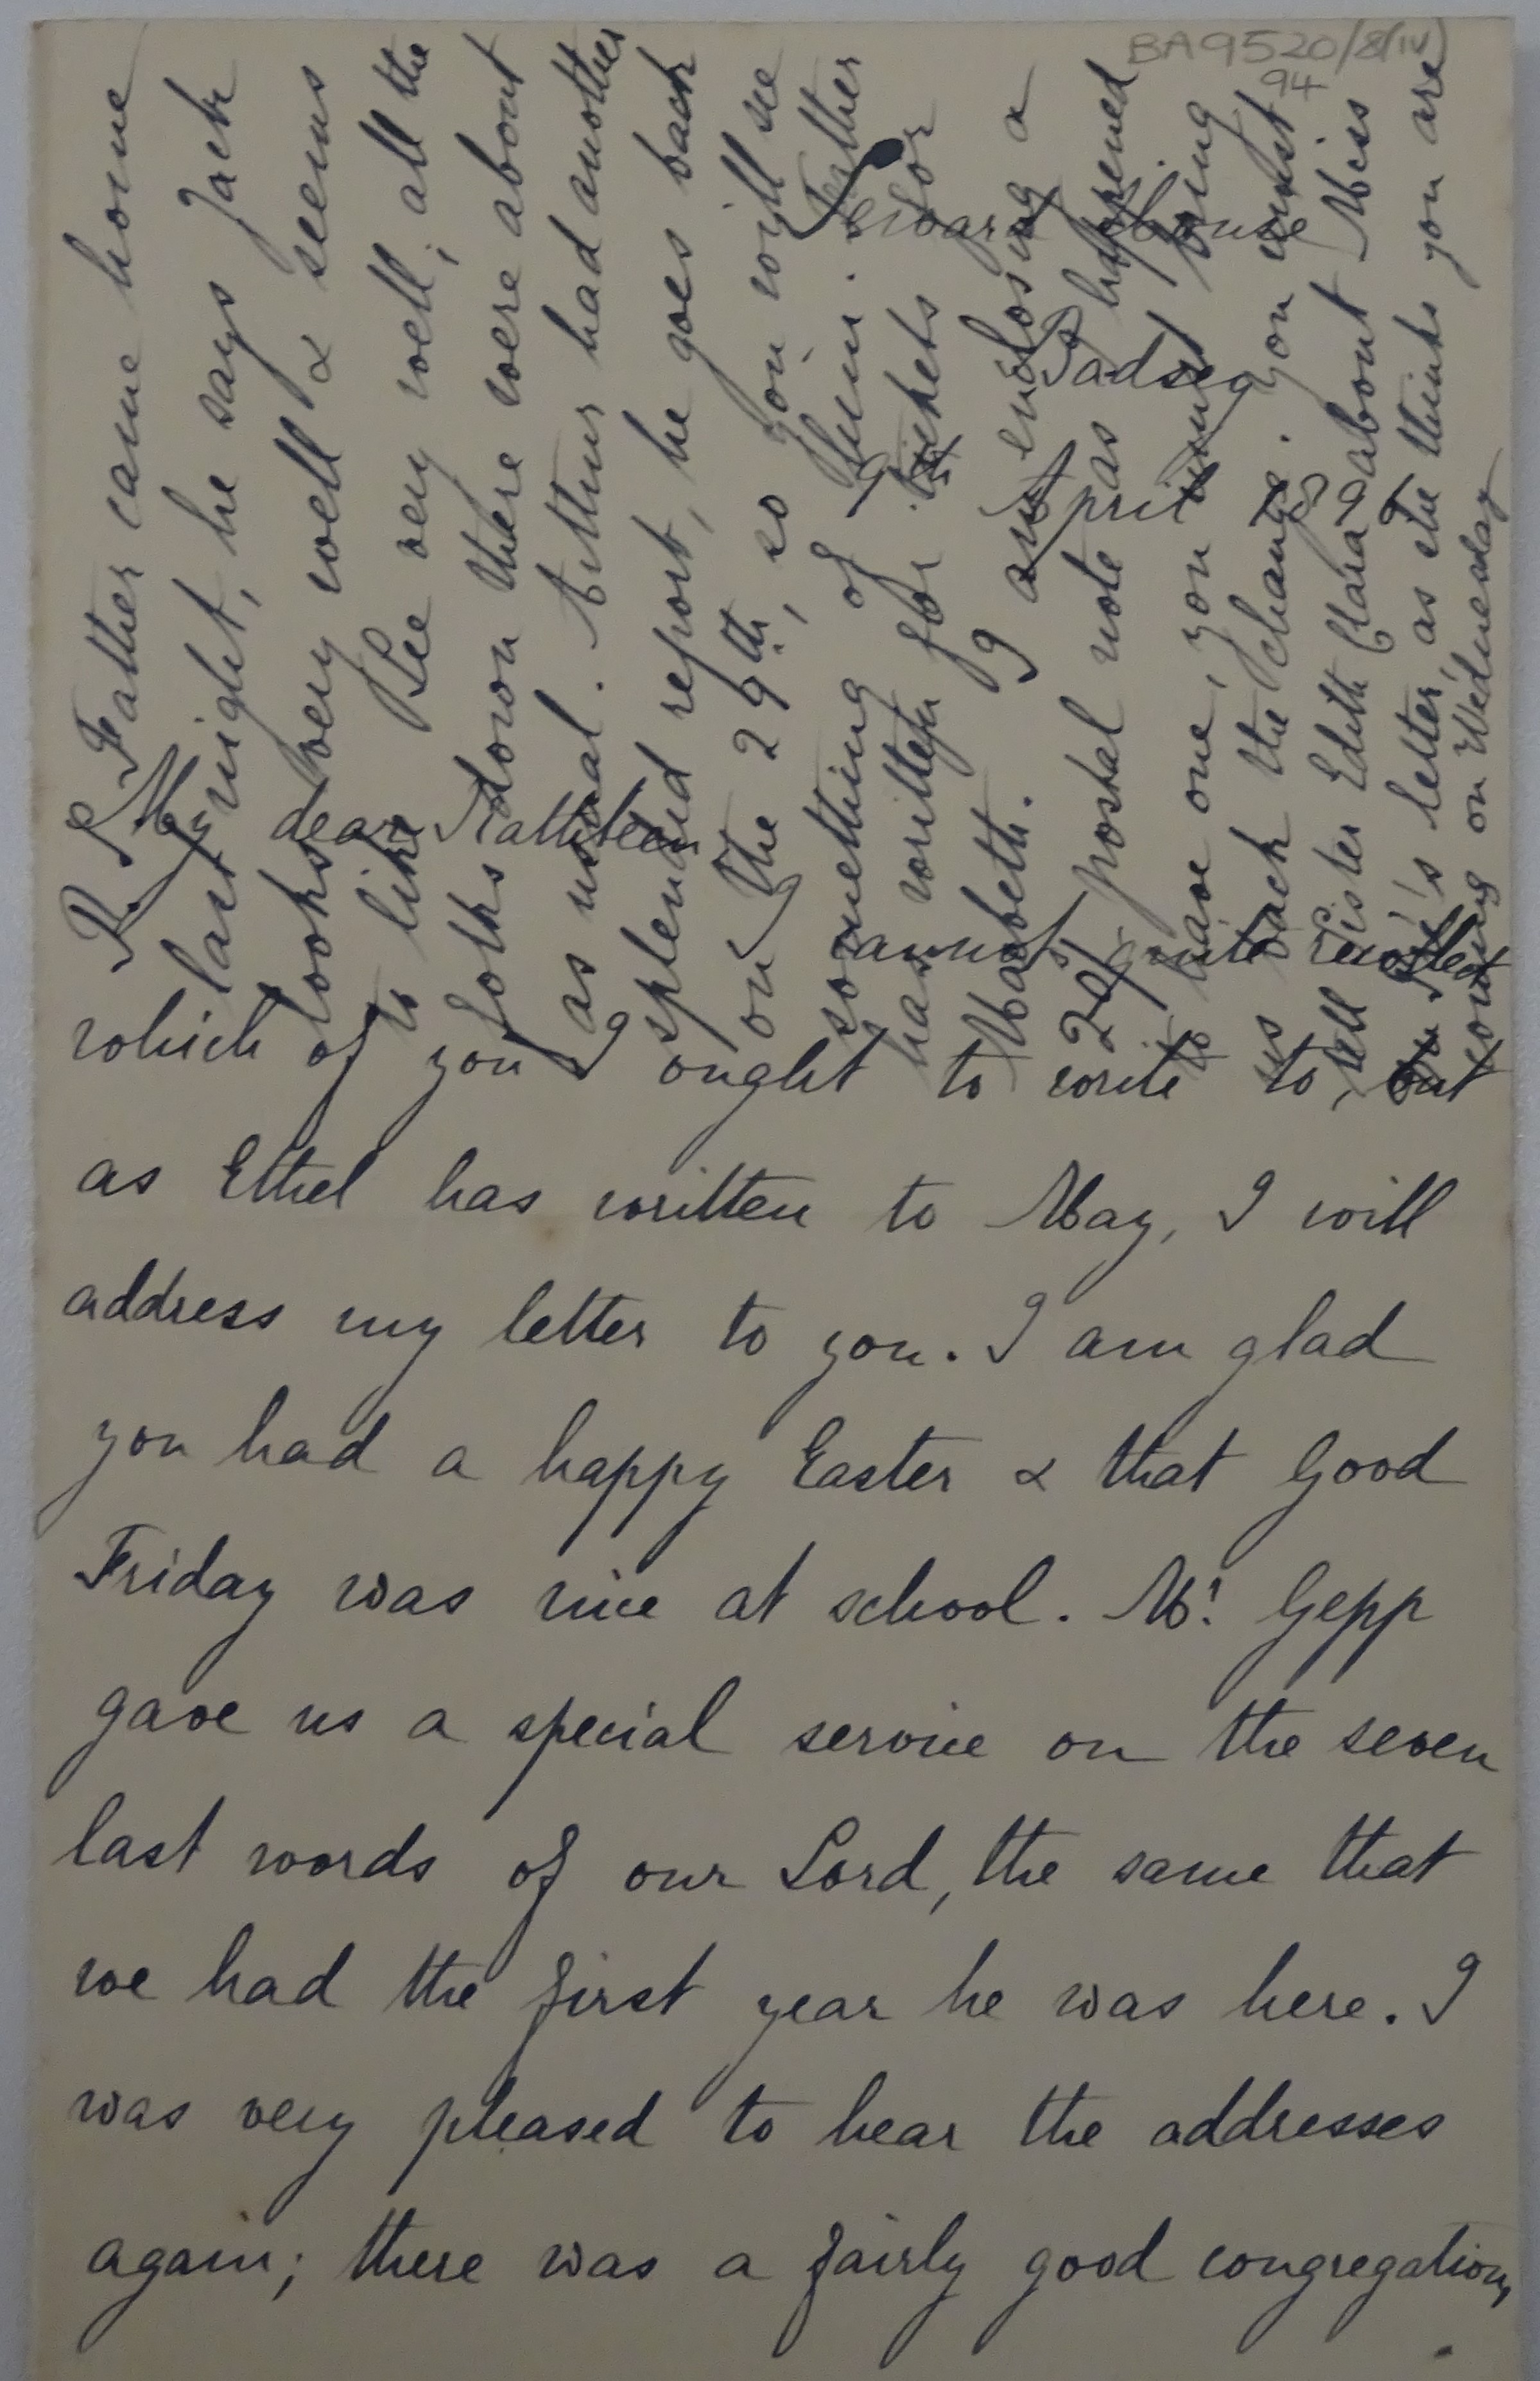 BA9520/8(iv)
94
Seward House
Badsey
9th April 1899
My dear Kathleen
I cannot quite recollect
which of you I ought to write to, but
as Ethel has written to May, I will
address my letter to you. I am glad
you had a happy Easter & that Good
Friday was nice at school. Mr. Gepp
gave us a special service on the seven
last words of our Lord, the same that
we had the first year he was here. I
was very pleased to hear the addresses
again; there was a fairly good congregation,
P.S. Father came home
last night, he says Jack
looks very well & seems
to like Lee very well; all the
folks down there were about
as usual. Arthur had another
splendid report, he goes back
on the 29th, so you will see
something of him. Father
has written for tickets for
Mabeth. I am enclosing a
2/ postal note as I happened
to have one, you must bring
us back the change. you must
tell Sister Edith Clara about Miss
letter, as she thinks you are
coming on Wednesday